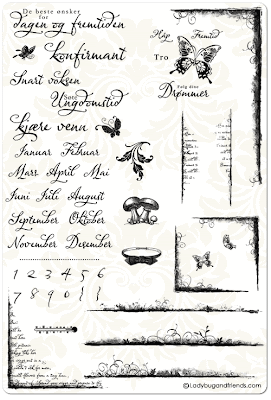 De beste ønsker
for
dagen og fremtiden
konfirmant
Snart voksen
Søte
Ungdomstid
kjære venn
Januar Februar
Mars April Mai
Juni Juli August
September Oktober
November Desember
1 2 3 4 5 6
7 8 9 0 { }
Håp Fremtid
Tro
Følg dine
Drømmer
©Ladybugandfriends.com